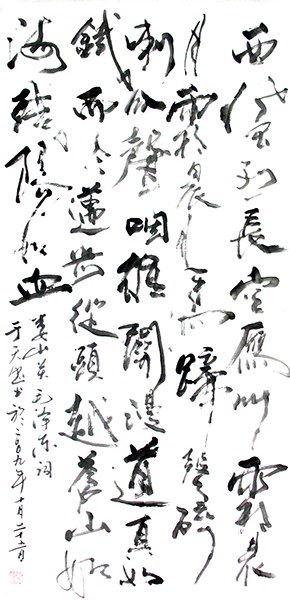 西風烈長空雁叫霜晨
月霜晨月馬蹄聲碎
喇叭聲咽雄關漫道真如
鐵而今邁步從頭越蒼山如
海殘陽如血
婁山关毛泽东词
于天书於二〇〇九年十月二十日